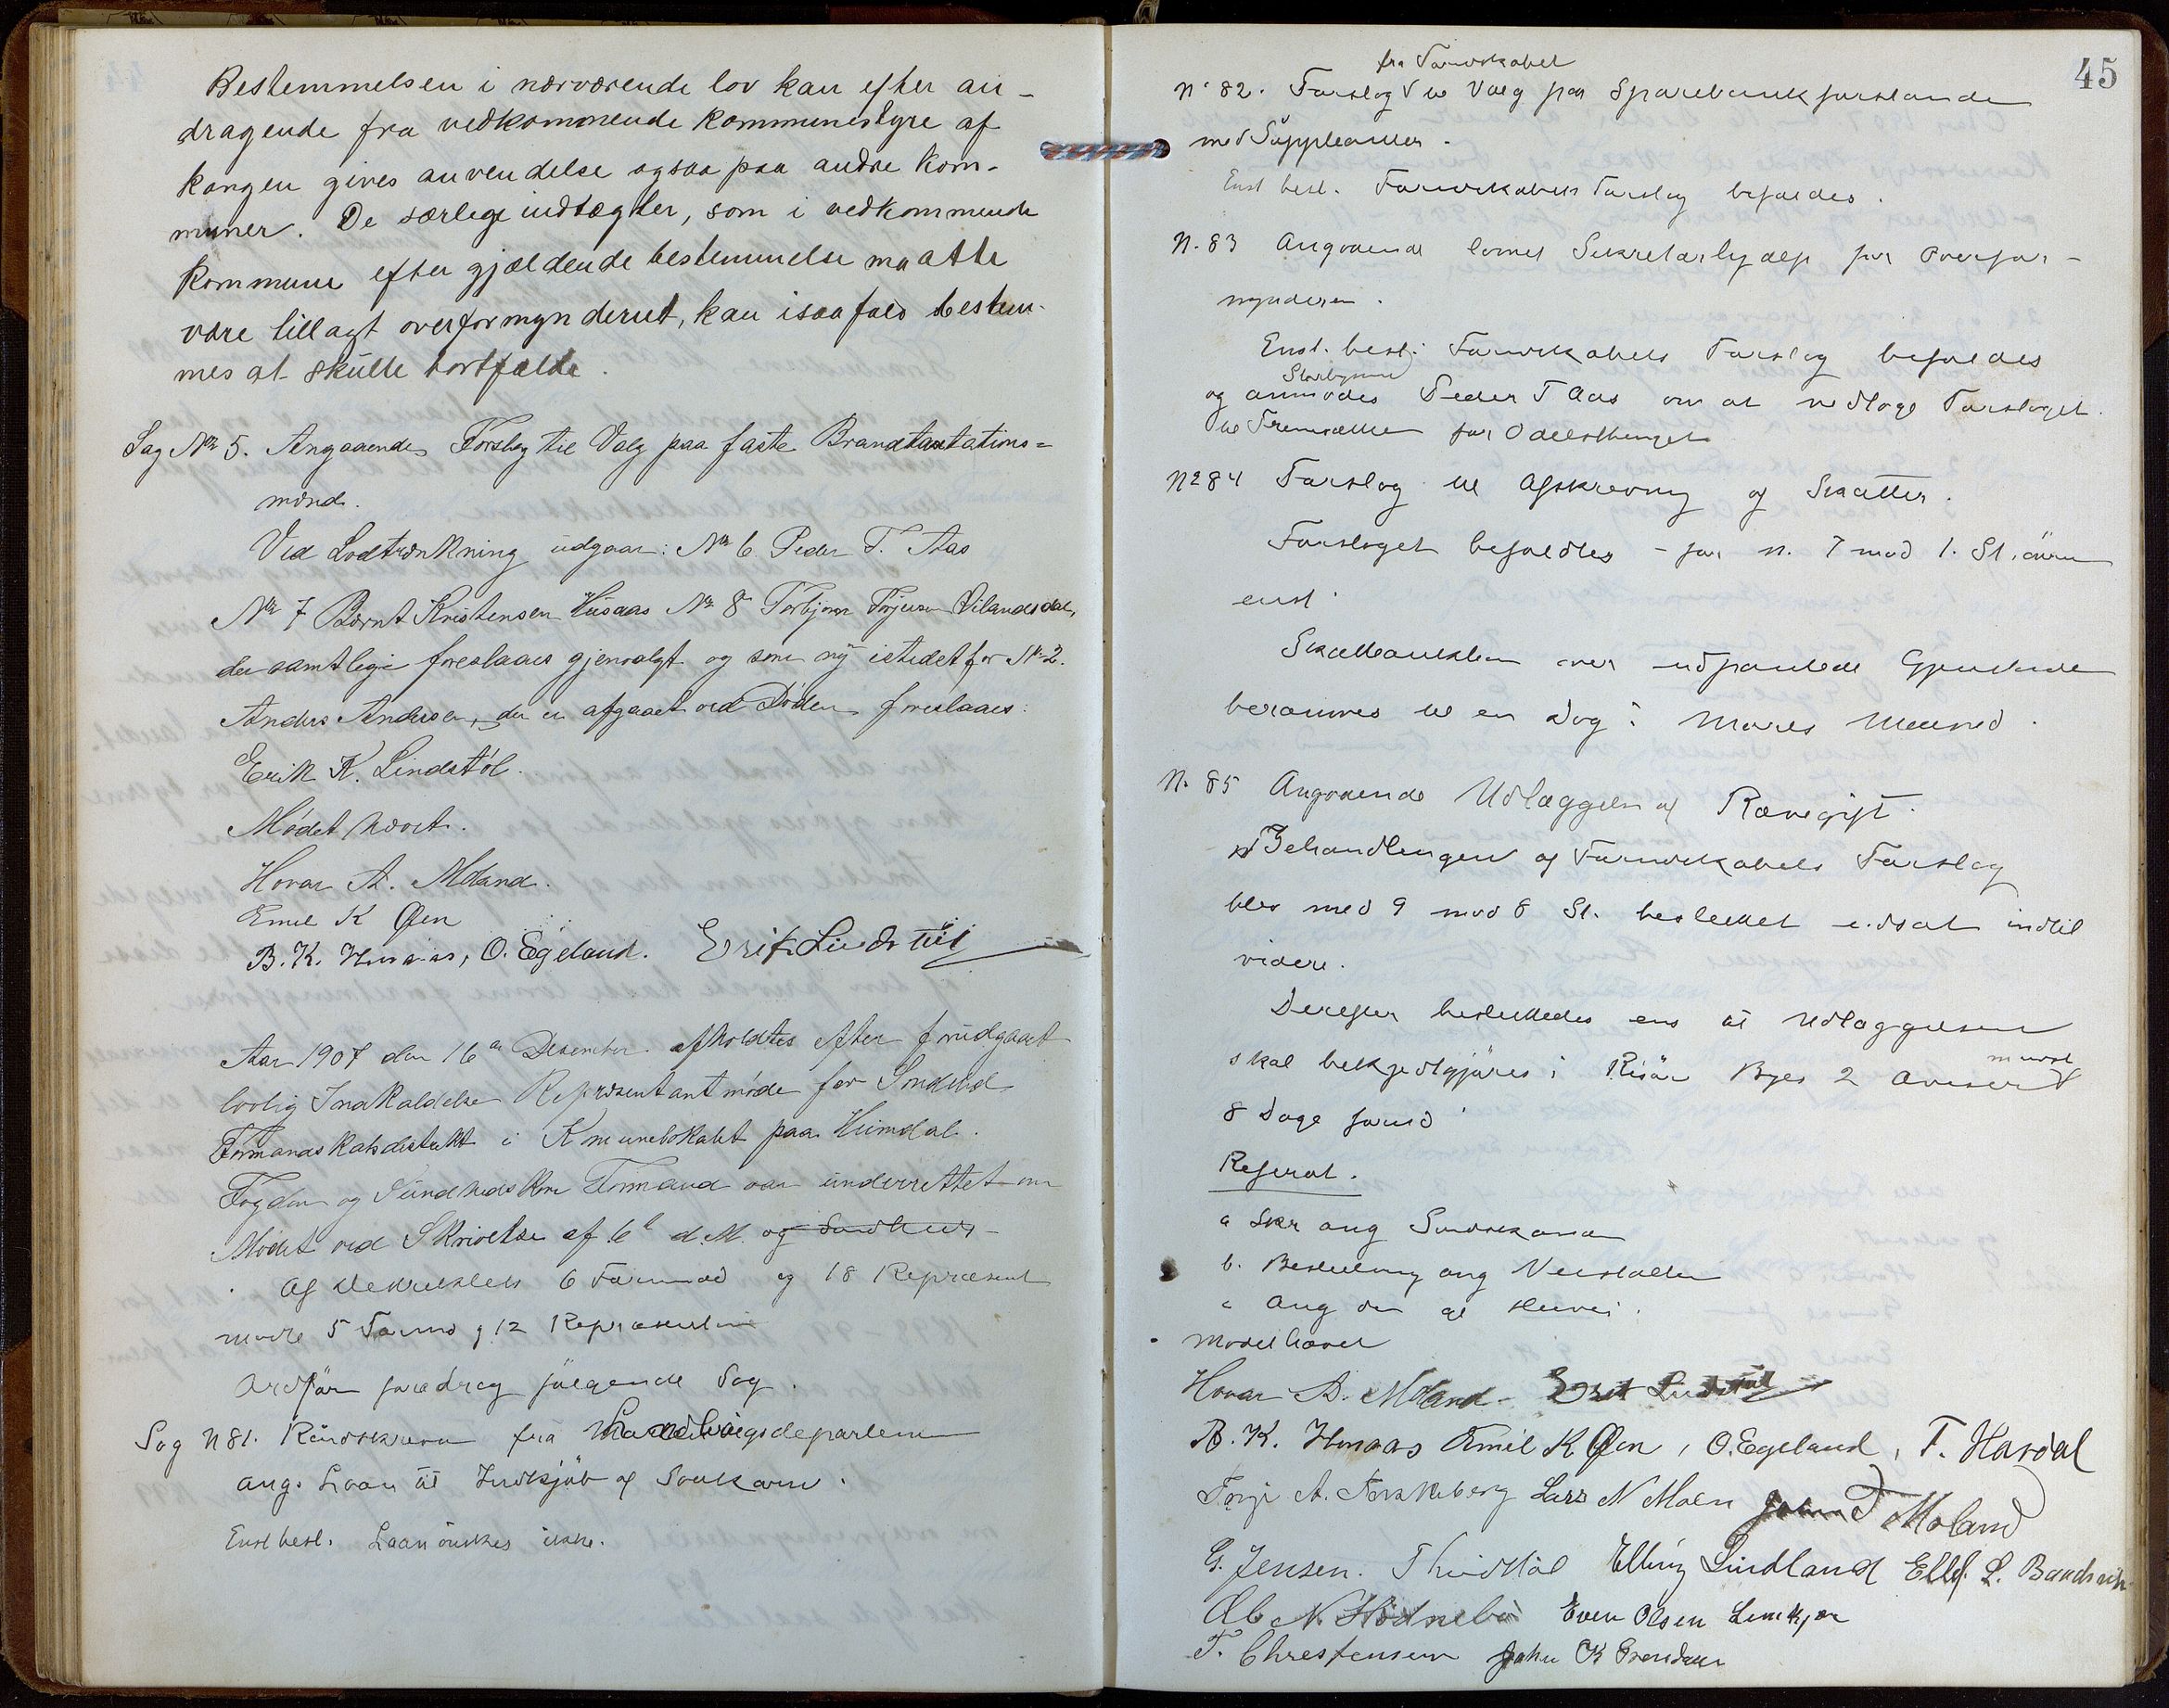 Bestemmelsen i nærværende lov kan efter an-
dragende fra vedkommende kommunestyre af
kongen gives anvendelse ogsaa paa andre kom-
muner. De særlige indtægter, som i vedkommende
kommune efter gjældende bestemmelse maatte
være tillagt overformynderiet, kan isaafald bestem-
mes at skulle bortfalde.
Sag No 5. Angaaende Forslag til Valg paa faste Brandtaxtations=
mænd.
Ved Lodtrækning udgaar: No 6 Peder T. Aas
No 7 Bernt Kristensen Husaas No 8 Torbjørn Terjesen Vilandsdal,
der samtlige foreslaaes gjenvalgt og som ny istedet for No 2.
Anders Andersen, der er afgaaet ved Døden foreslaaes:
Erik K. Lindstøl.
Mødet hævet.
Hovar A. Moland.
Emil K Øen
B. K. Husaas, O. Egeland. Erik Lindstøl
Aar 1907 den 16de Desember afholdtes efter forudgaaet
lovlig Indkaldelse Repræsentantmøde for Søndeled
Formandskabsdistrikt i Komunelokalet paa Heimdal.
Fogden og Sundhedskom Formand var underrettet om
Mødet ved Skrivelse af 6te d.M. og Sundheds-
Af Herredets 6 Formænd og 18 Repræsent
mødte 5 Formd og 12 Repræsentan
Ordfør foredrog følgende Sag.
Sag N 81. Rundskriv fra Landbrugsdepartem
ang. Laan til Indkjøb af Saakorn.
Enst besl. Laan ønskes ikke.
45
fra Formdskabet
No 82. Forslag til Valg paa Sparebankforstander
med Suppleanter.
Enst besl. Formdskabets Forslag bifaldes.
N. 83 Angaaende lønnet Sekretærhjælp for Overfor-
mynderen.
Enst. besl: Formdskabets Forslag bifaldes
og anmodes Peder T Aas om at vedtage Forslaget
til Fremsættelse for Odelsthinget
No 84 Forslag til Afskrevning af Skatter.
Forslaget bifaldtes - for n. 7 mod 1. St. øvrige
enst.
Skatteauktion over udpantede Gjenstande
berammes til en Dag i Marts Maaned.
N. 85 Angaaende Udlæggelse af Rævegift.
Behandlingen af Formdskabets Forslag
blev med 9 mod 8 St. besluttet udsat indtil
videre.
Derefter besluttedes ens at Udlæggelsen
skal bekjendtgjøres i Risør Byes 2 Aviser mindst
8 Dage forud.
Referat.
a Skr ang
b. Beslutning ang
c Ang
Mødet hævet
Hovar A. Moland - Erik Lindstøl
B. K. Husaas Emil K. Øen, O. Egeland, T. Havdal
Terje A. Lars N Moen John Moland
G. Jensen. T Lindstøl Elling Lindland Ellef. L.
N. Hødnebø Even Olsen Lemkjær
T. Christensen John K